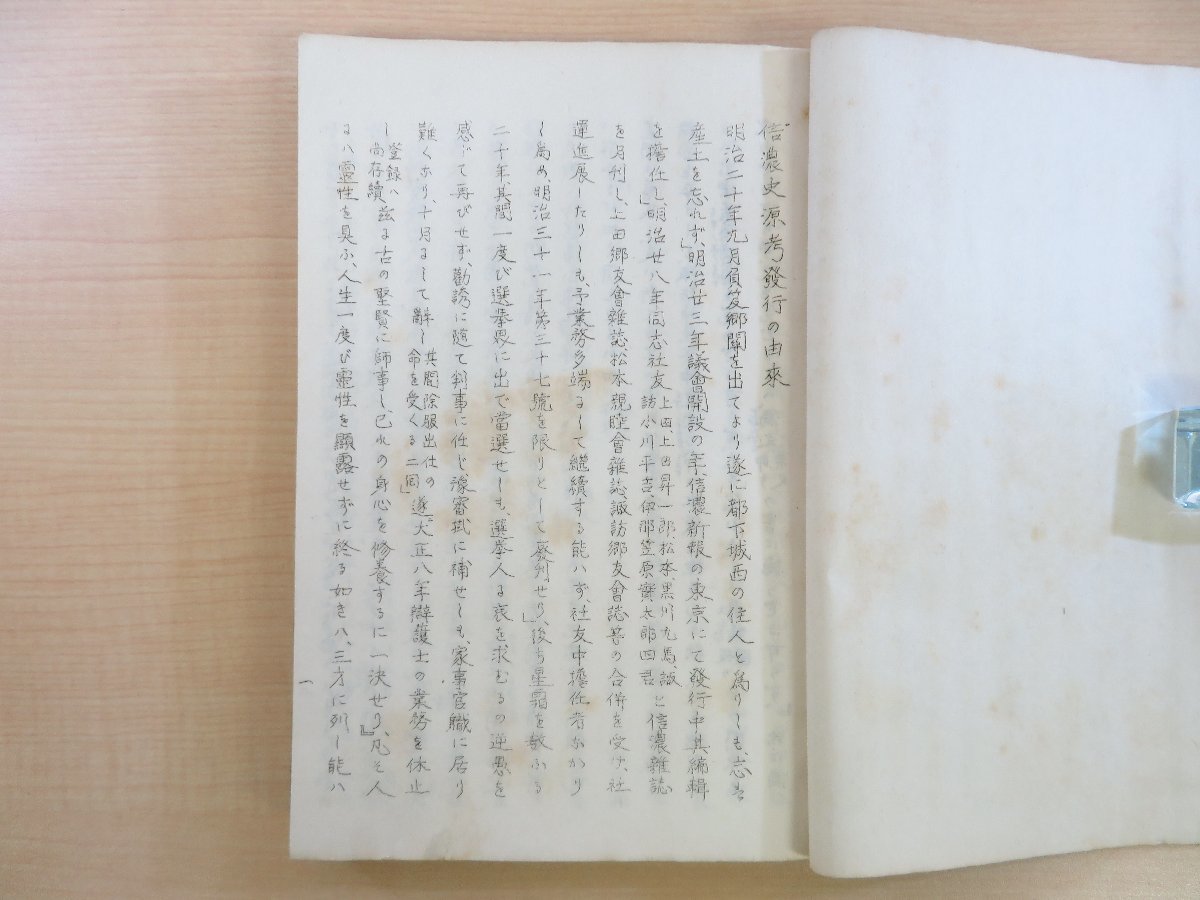 信濃史源考發行の由來
明治二十年九月負笈郷關を出てより遂に都下城西の住人と為りしも、志は
産土を忘れず、」明治廿三年議會開設の年、信濃新報の東京にて發行中其編輯
を擔任し、」明治廿八年同志社友上田上田昇一郎、松本、黒川九馬、諏訪小川平吉、伊那笠原實太郎四君と信濃雜誌
を月刊し、上田郷友會雜誌松本親睦會雜誌諏訪郷友會誌等の合併を受け、社
運進展したりしも、予業務多端るして繼續する能ハず、社友中擔任者なかり
し為め、明治三十一年第三十七號を限りとして廢刊せり、」後ち星霜を數ふる
二十年、其間一度び選擧界に出で當選せしも、選擧人る哀を求むるの逆愚を
感じて再びせず、勸誘に隨て判事に任じ豫審掛に補せしも、家事官職に居り
難くなり、十月るして辭し其間除服出仕の命を受くる二回」遂に大正八年辯護士の業務を休止
し登録ハ尚存續茲る古の聖賢に師事し、己れの身心を修養するに一決せり、』凡そ人
るハ靈性を具ふ、人生一度び靈性を顯露せずに終る如きハ、三才に列し能ハ
一